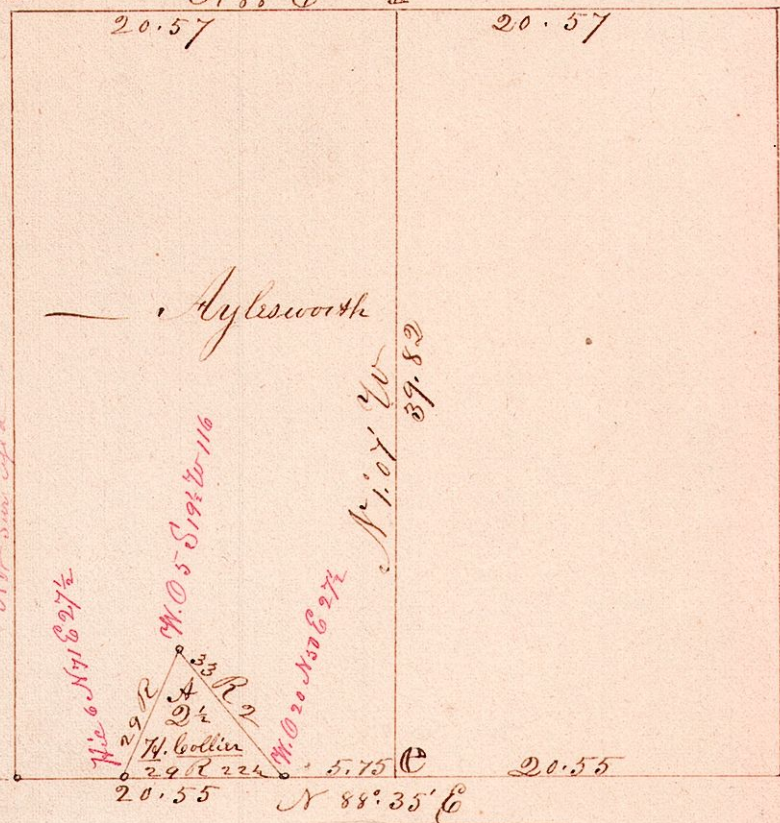 20.57
20.57
Aylesworth
N 1.07' W
39.82
W.O 5 S 19½ W 116
Hic 6 N 71 E 27½
W.O 20 N 50 E 27½
29 R
33 R 2
A
2½
H. Collier
29 R 22½
5.75
e
20.55
20.55
N 88° 35' E